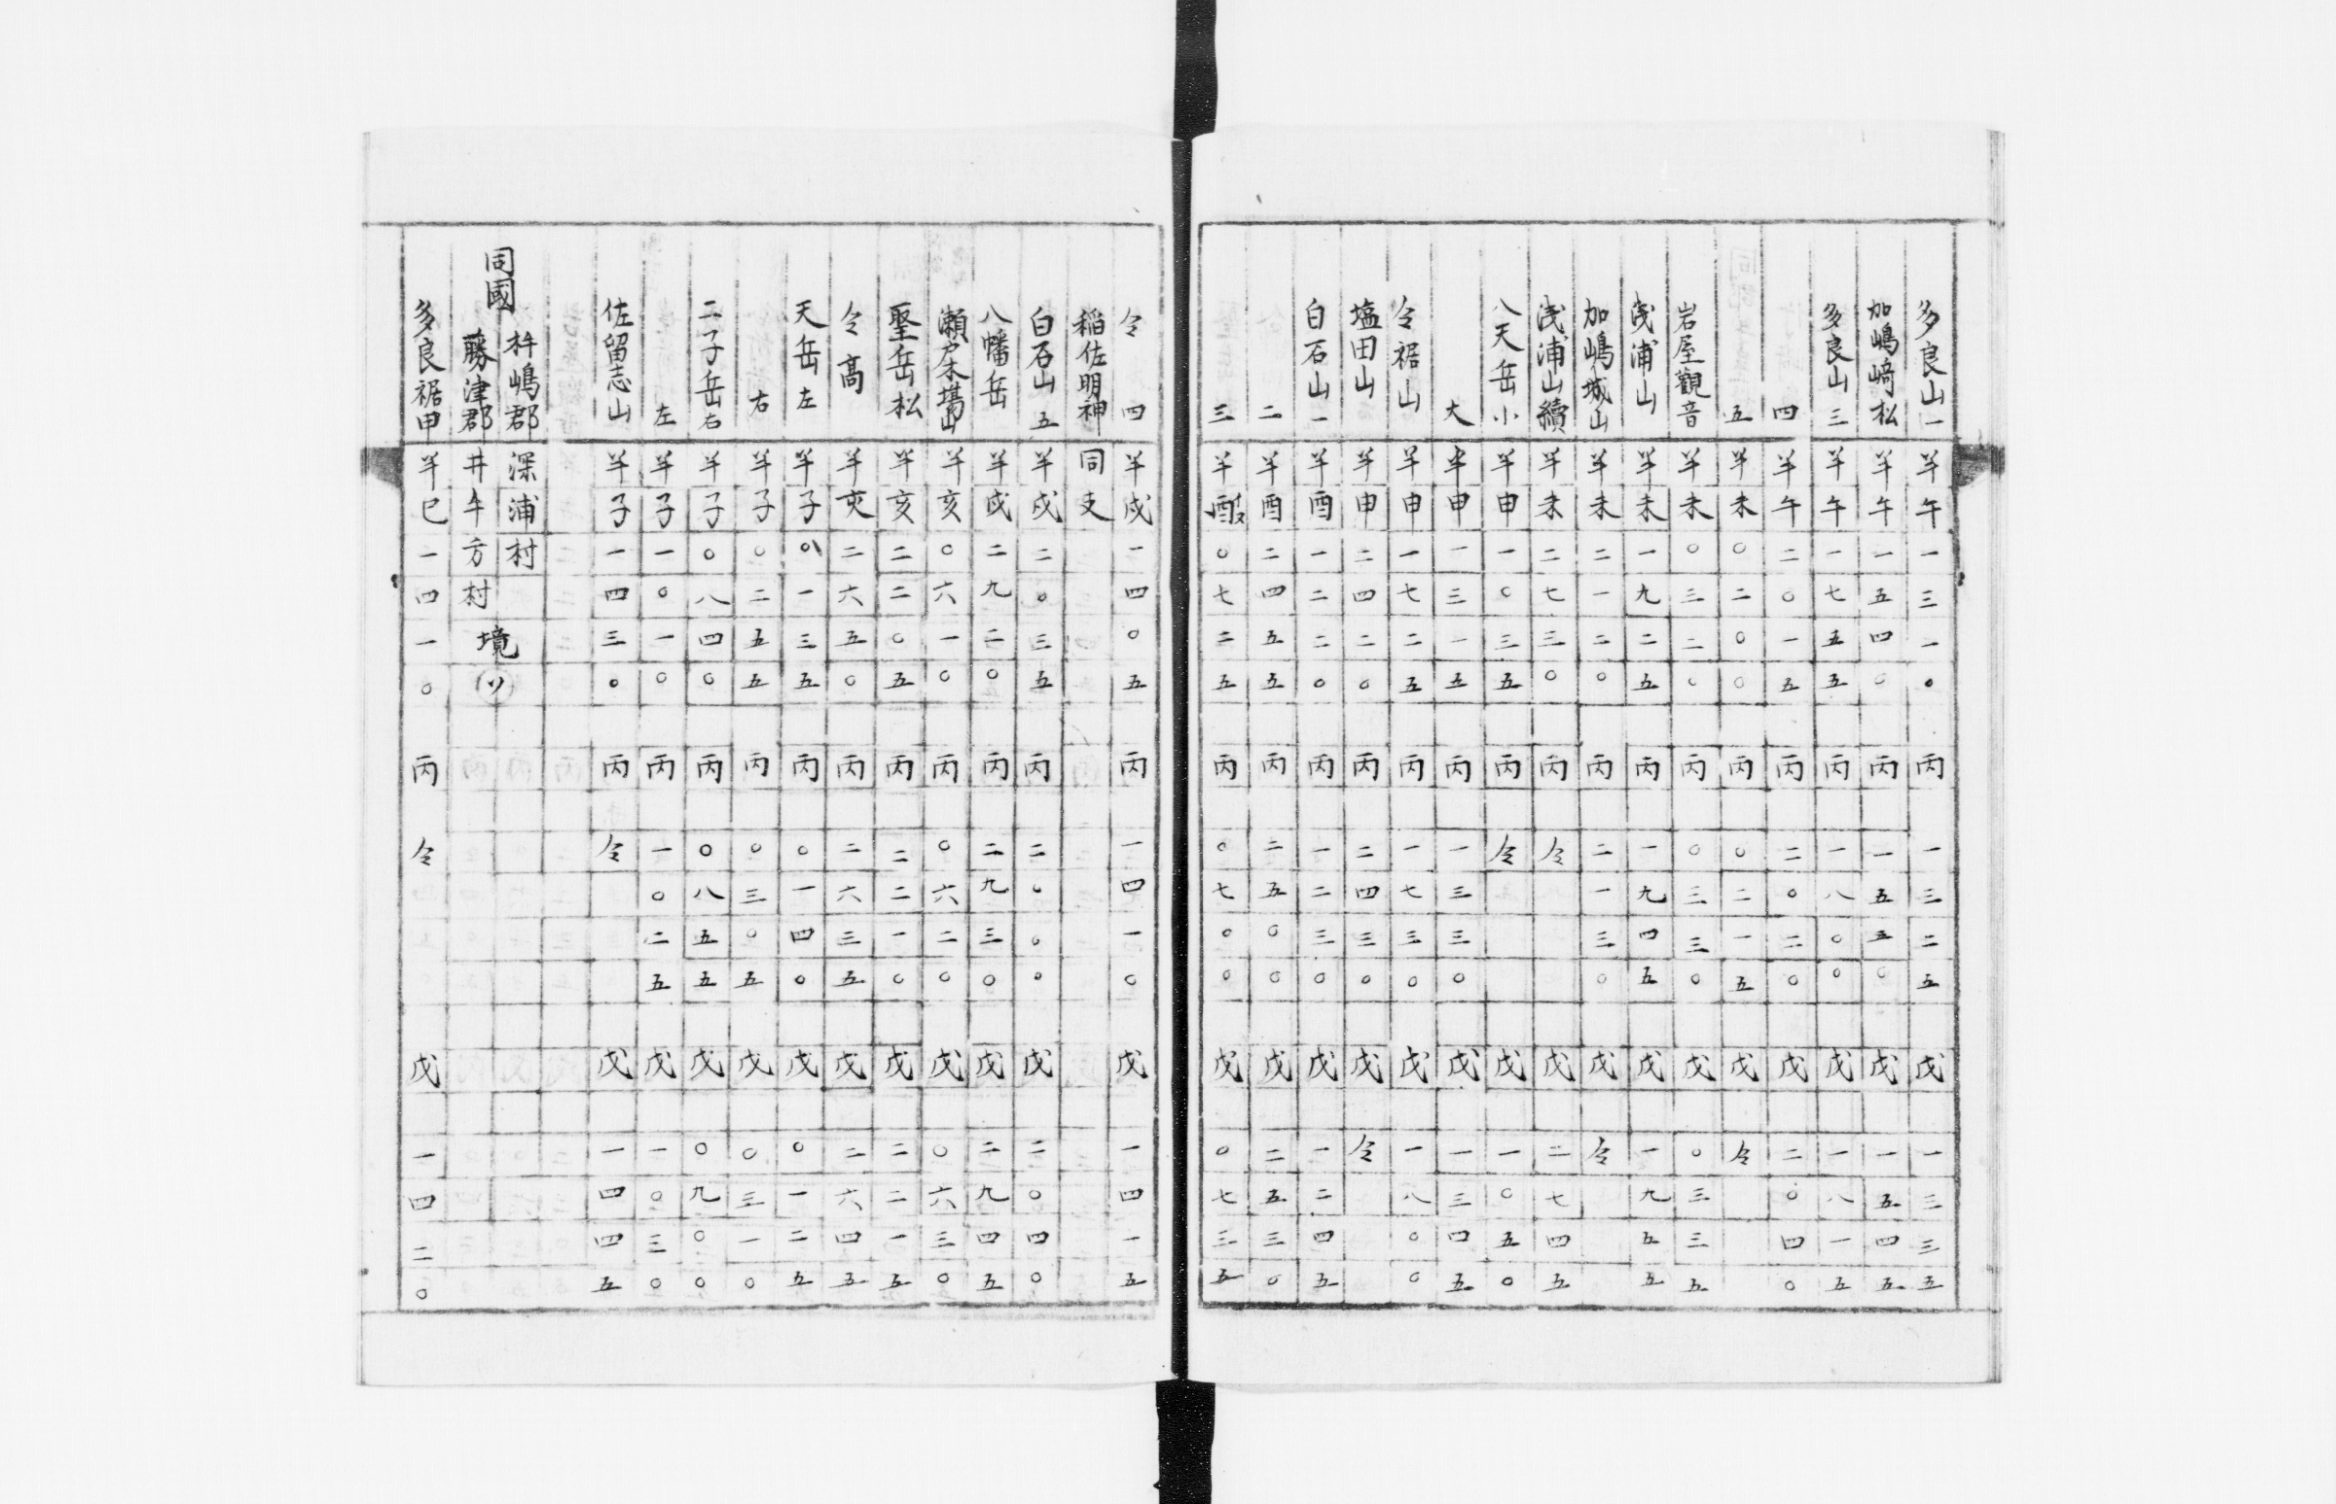 多良山一 半午一三一〇 丙 一三二五 戊 一三三五
加嶋﨑松 半午一五四〇 丙 一五五〇 戊 一五四五
多良山三 半午一七五五 丙 一八〇〇 戊 一八一五
四 半午二〇一五 丙 二〇二〇 戊 二〇四〇
五 半未〇二〇〇 丙 〇二一五 戊 仝
岩屋觀音 半未〇三二〇 丙 〇三三〇 戊 〇三三五
浅浦山 半未一九二五 丙 一九四五 戊 一九五五
加嶋城山 半未二一二〇 丙 二一三〇 戊 仝
浅浦山續 半未二七三〇 丙 仝 戊 二七四五
八天岳小 半申一〇三五 丙 仝 戊 一〇五〇
大 半申一三一五 丙 一三三〇 戊 一三四五
仝裾山 半申一七二五 丙 一七三〇 戊 一八〇〇
塩田山 半申二四二〇 丙 二四三〇 戊 仝
白石山一 半酉一二二〇 丙 一二三〇 戊 一二四五
二 半酉二四五五 丙 二五〇〇 戊 二五三〇
三 半〇七二五 丙 〇七〇〇 戊 〇七三五
仝 四 半戌一四〇五 丙 一四一〇 戊 一四一五
稲佐明神 同支
白石山五 半戌二〇三五 丙 二〇〇〇 戊 二〇四〇
八幡岳 半戌二九二〇 丙 二九三〇 戊 二九四五
瀬戸木場山 半亥〇六一〇 丙 〇六二〇 戊 〇六三〇
聖岳松 半亥二二〇五 丙 二二一〇 戊 二二一五
仝高 半亥二六五〇 丙 二六三五 戊 二六四五
天岳左 半子〇一三五 丙 〇一四〇 戊 〇一二五
右 半子〇二五五 丙 〇三〇五 戊 〇三一〇
二子岳右 半子〇八四〇 丙 〇八五五 戊 〇九〇〇
左 半子一〇一〇 丙 一〇二五 戊 一〇三〇
佐留志山 半子一四三〇 丙 仝 戊 一四四五
同國
杵嶋郡 深浦村
藤津郡 井牛方村
境 (ソ)
多良裾申 半巳一四一〇 丙 仝 戊 一四二〇